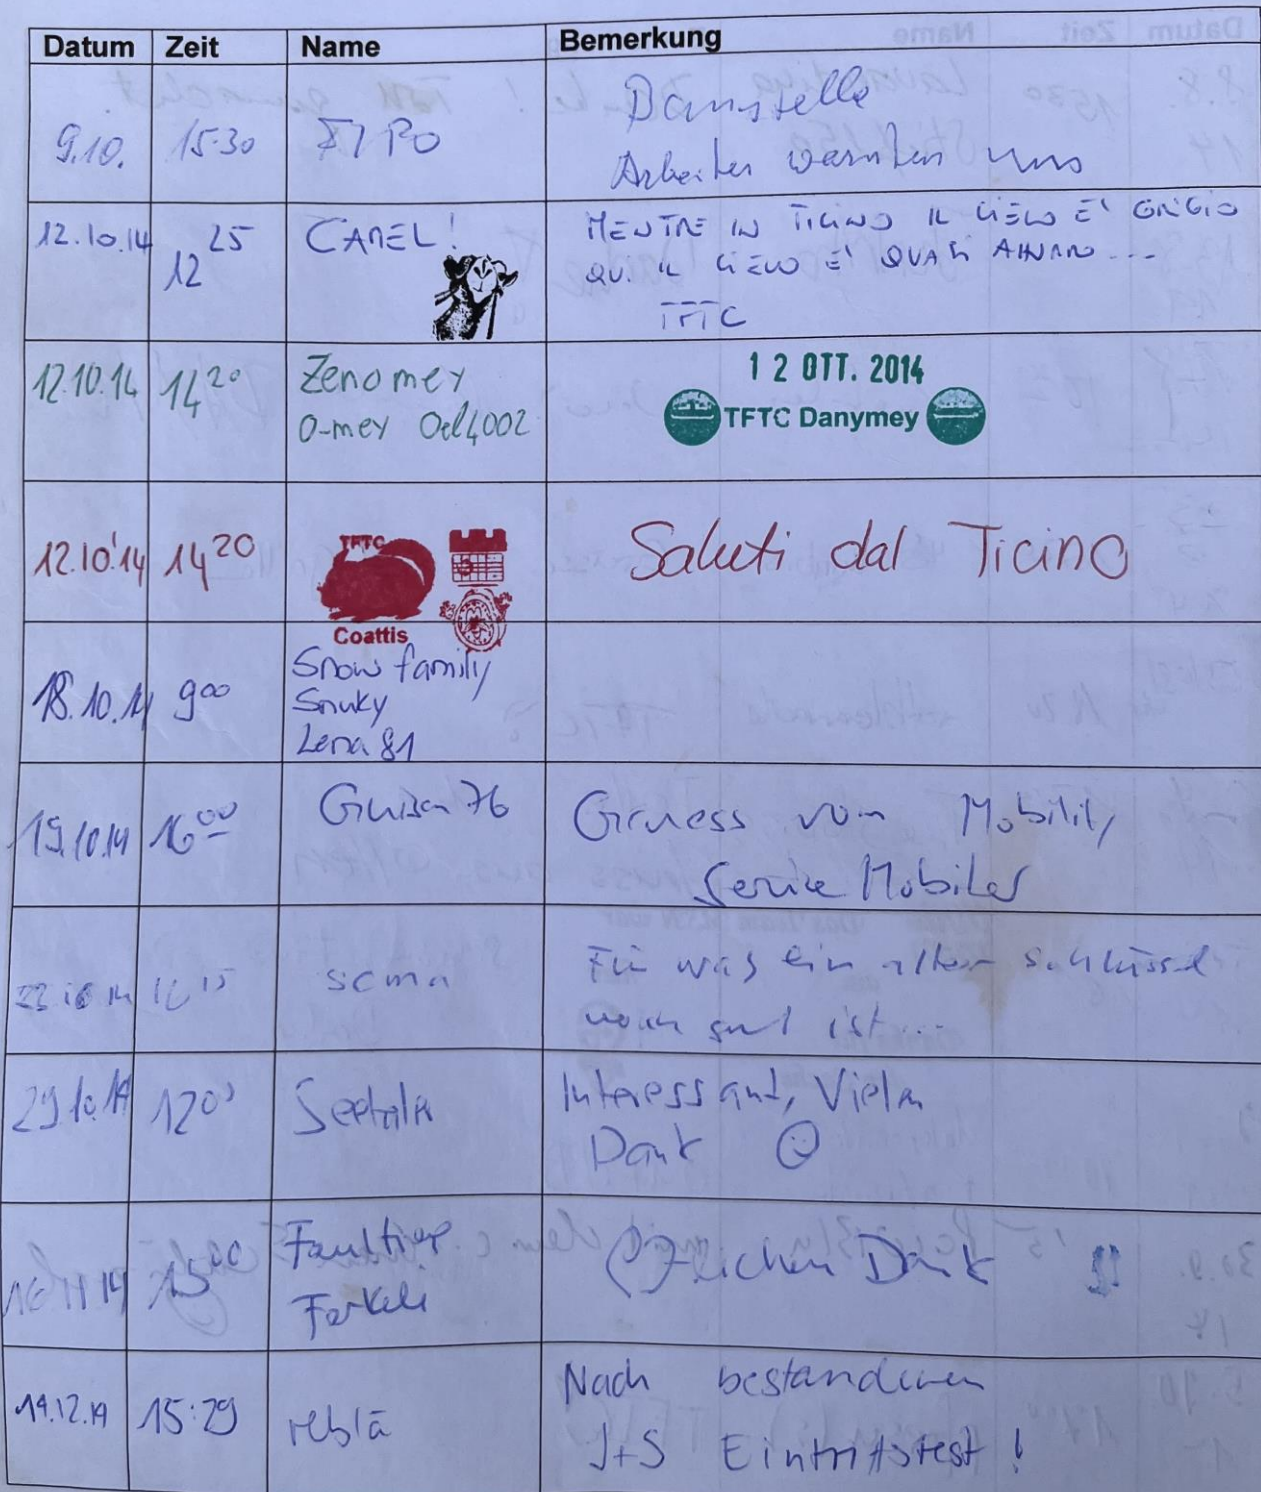 Datum Zeit Name Bemerkung
9.10. 15:30 FIPO
Baustelle
Arbeiter warnten uns
12.10.14 12 25 CAMEL!
MENTRE IN TICINO IL CIELO E' GRIGIO
QUI IL CIELO E' QUASI
TFTC
12.10.14 14 20 Zenomey
O-mey Oel4002
12 OTT. 2014
TFTC Danymey
12.10.14 14 20
TFTC
Coattis
Saluti dal Ticino
18.10.14 9 00 Snow family
Snuky
Lena 81
19.10.14 16 00 Guisan 76
Gruess vom Mobility
Service Mobiler
15
Für was ein alter Schlüssel
noch gut ist...
29.10.14 12 00
Interessant, Vielen
Dank ☺
16 11 14 15 00 Faultier
Ferkeli
Dank !!
14.12.14 15:29 reblä
Nach bestandenem
J+S Eintrittstest!